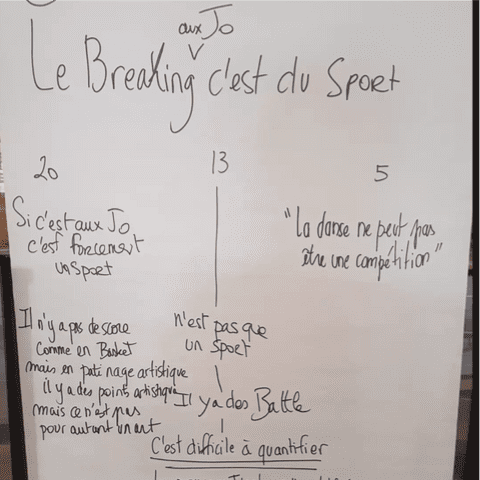 aux Jo
Le Breaking c'est du Sport
20
13
5
Si c'est aux Jo
c'est forcément
un sport
"La danse ne peut pas
être une compétition"
Il n'y a pas de score
comme en Basket
mais en patinage artistique
il y a des points artistique
mais ce n'est pas
pour autant un art
n'est pas que
un sport
Il y a des Battle
C'est difficile à quantifier